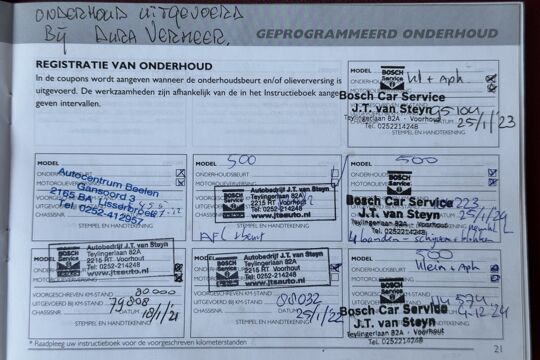 ONDERHOUD UITGEVOERD
Bij AURA VERMEER.
GEPROGRAMMEERD ONDERHOUD
REGISTRATIE VAN ONDERHOUD
In de coupons wordt aangeven wanneer de onderhoudsbeurt en/of olieverversing is
uitgevoerd. De werkzaamheden zijn afhankelijk van de in het Instructieboek aange
geven intervallen.
BOSCH
Service
+ Apk
Bosch Car Service
J.T. van Steyn
Teylingerlaan 82A · Voorhout
Tel. 0252214248
DATUM 25/1/'23
STEMPEL EN HANDTEKENING
MODEL
Autocentrum Beelen
Gansoord 3
2165 BA Lisserbroek
Tel. 0252-412957
CHASSISNR
STEMPEL EN HANDTEKENING
MODEL 500
ONDERHOUDSBEURT
MOTOROLIEVERVERSING
BOSCH
Service
Autobedrijf J.T. van Steyn
Teylingerlaan 82A
2215 RT Voorhout
Tel. 0252-214248
www.jtsauto.nl
STEMPEL EN HANDTEKENING
MODEL 500
BOSCH
Service
Bosch Car Service
J.T. van Steyn
Teylingerlaan 82A · Voorhout
Tel. 0252214248
25/1/24
4 banden
MODEL
BOSCH
Service
Autobedrijf J.T. van Steyn
Teylingerlaan 82A
2215 RT Voorhout
Tel. 0252-214248
www.jtsauto.nl
VOORGESCHREVEN KM-STAND 80000
UITGEVOERD BIJ KM-STAND 79808
CHASSISNR DATUM 18/1/21
STEMPEL EN HANDTEKENING
BOSCH
Service
Autobedrijf J.T. van Steyn
Teylingerlaan 82A
2215 RT Voorhout
Tel. 0252-214248
www.jtsauto.nl
VOORGESCHREVEN KM-STAND
UITGEVOERD BIJ KM-STAND 88032
CHASSISNR DATUM 25/1/22
STEMPEL EN HANDTEKENING
MODEL 500
BOSCH
Service
Klein + Apk
Bosch Car Service
J.T. van Steyn
Teylingerlaan 82A · Voorhout
Tel. 0252214248
4-12-24
* Raadpleeg uw instructieboek voor de voorgeschreven kilometerstanden
21